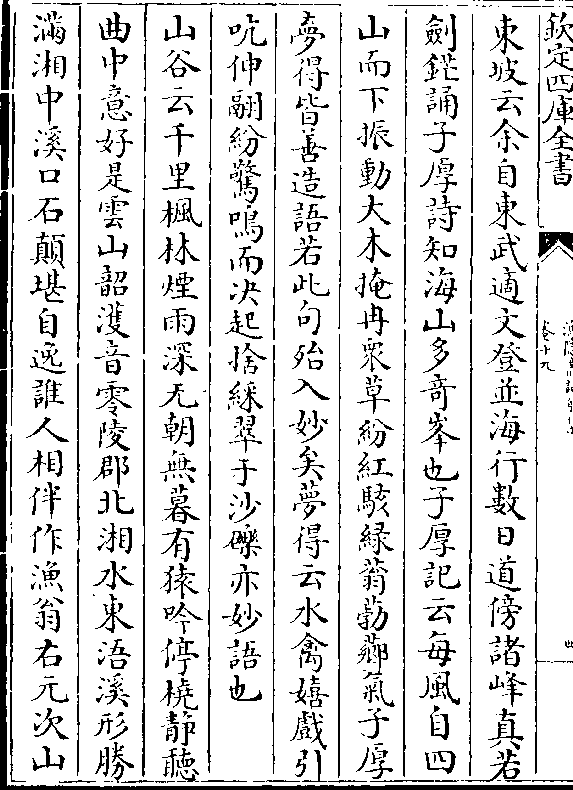 欽定四庫全書
卷十九
東坡云余自東武適文登並海行數日道傍諸峰真若
劍鋩誦子厚詩知海山多奇峯也子厚記云每風自四
山而下振動大木掩冉衆草紛紅駭緑蓊葧薌氣子厚
夢得皆善造語若此句殆入妙矣夢得云水禽嬉戲引
吭伸翮紛驚鳴而决起拾綵翠于沙礫亦妙語也
山谷云千里楓林煙雨深无朝無暮有猿吟停橈静聽
曲中意好是雲山韶濩音零陵郡北湘水東浯溪形勝
滿湘中溪口石顛堪自逸誰人相伴作漁翁右元次山